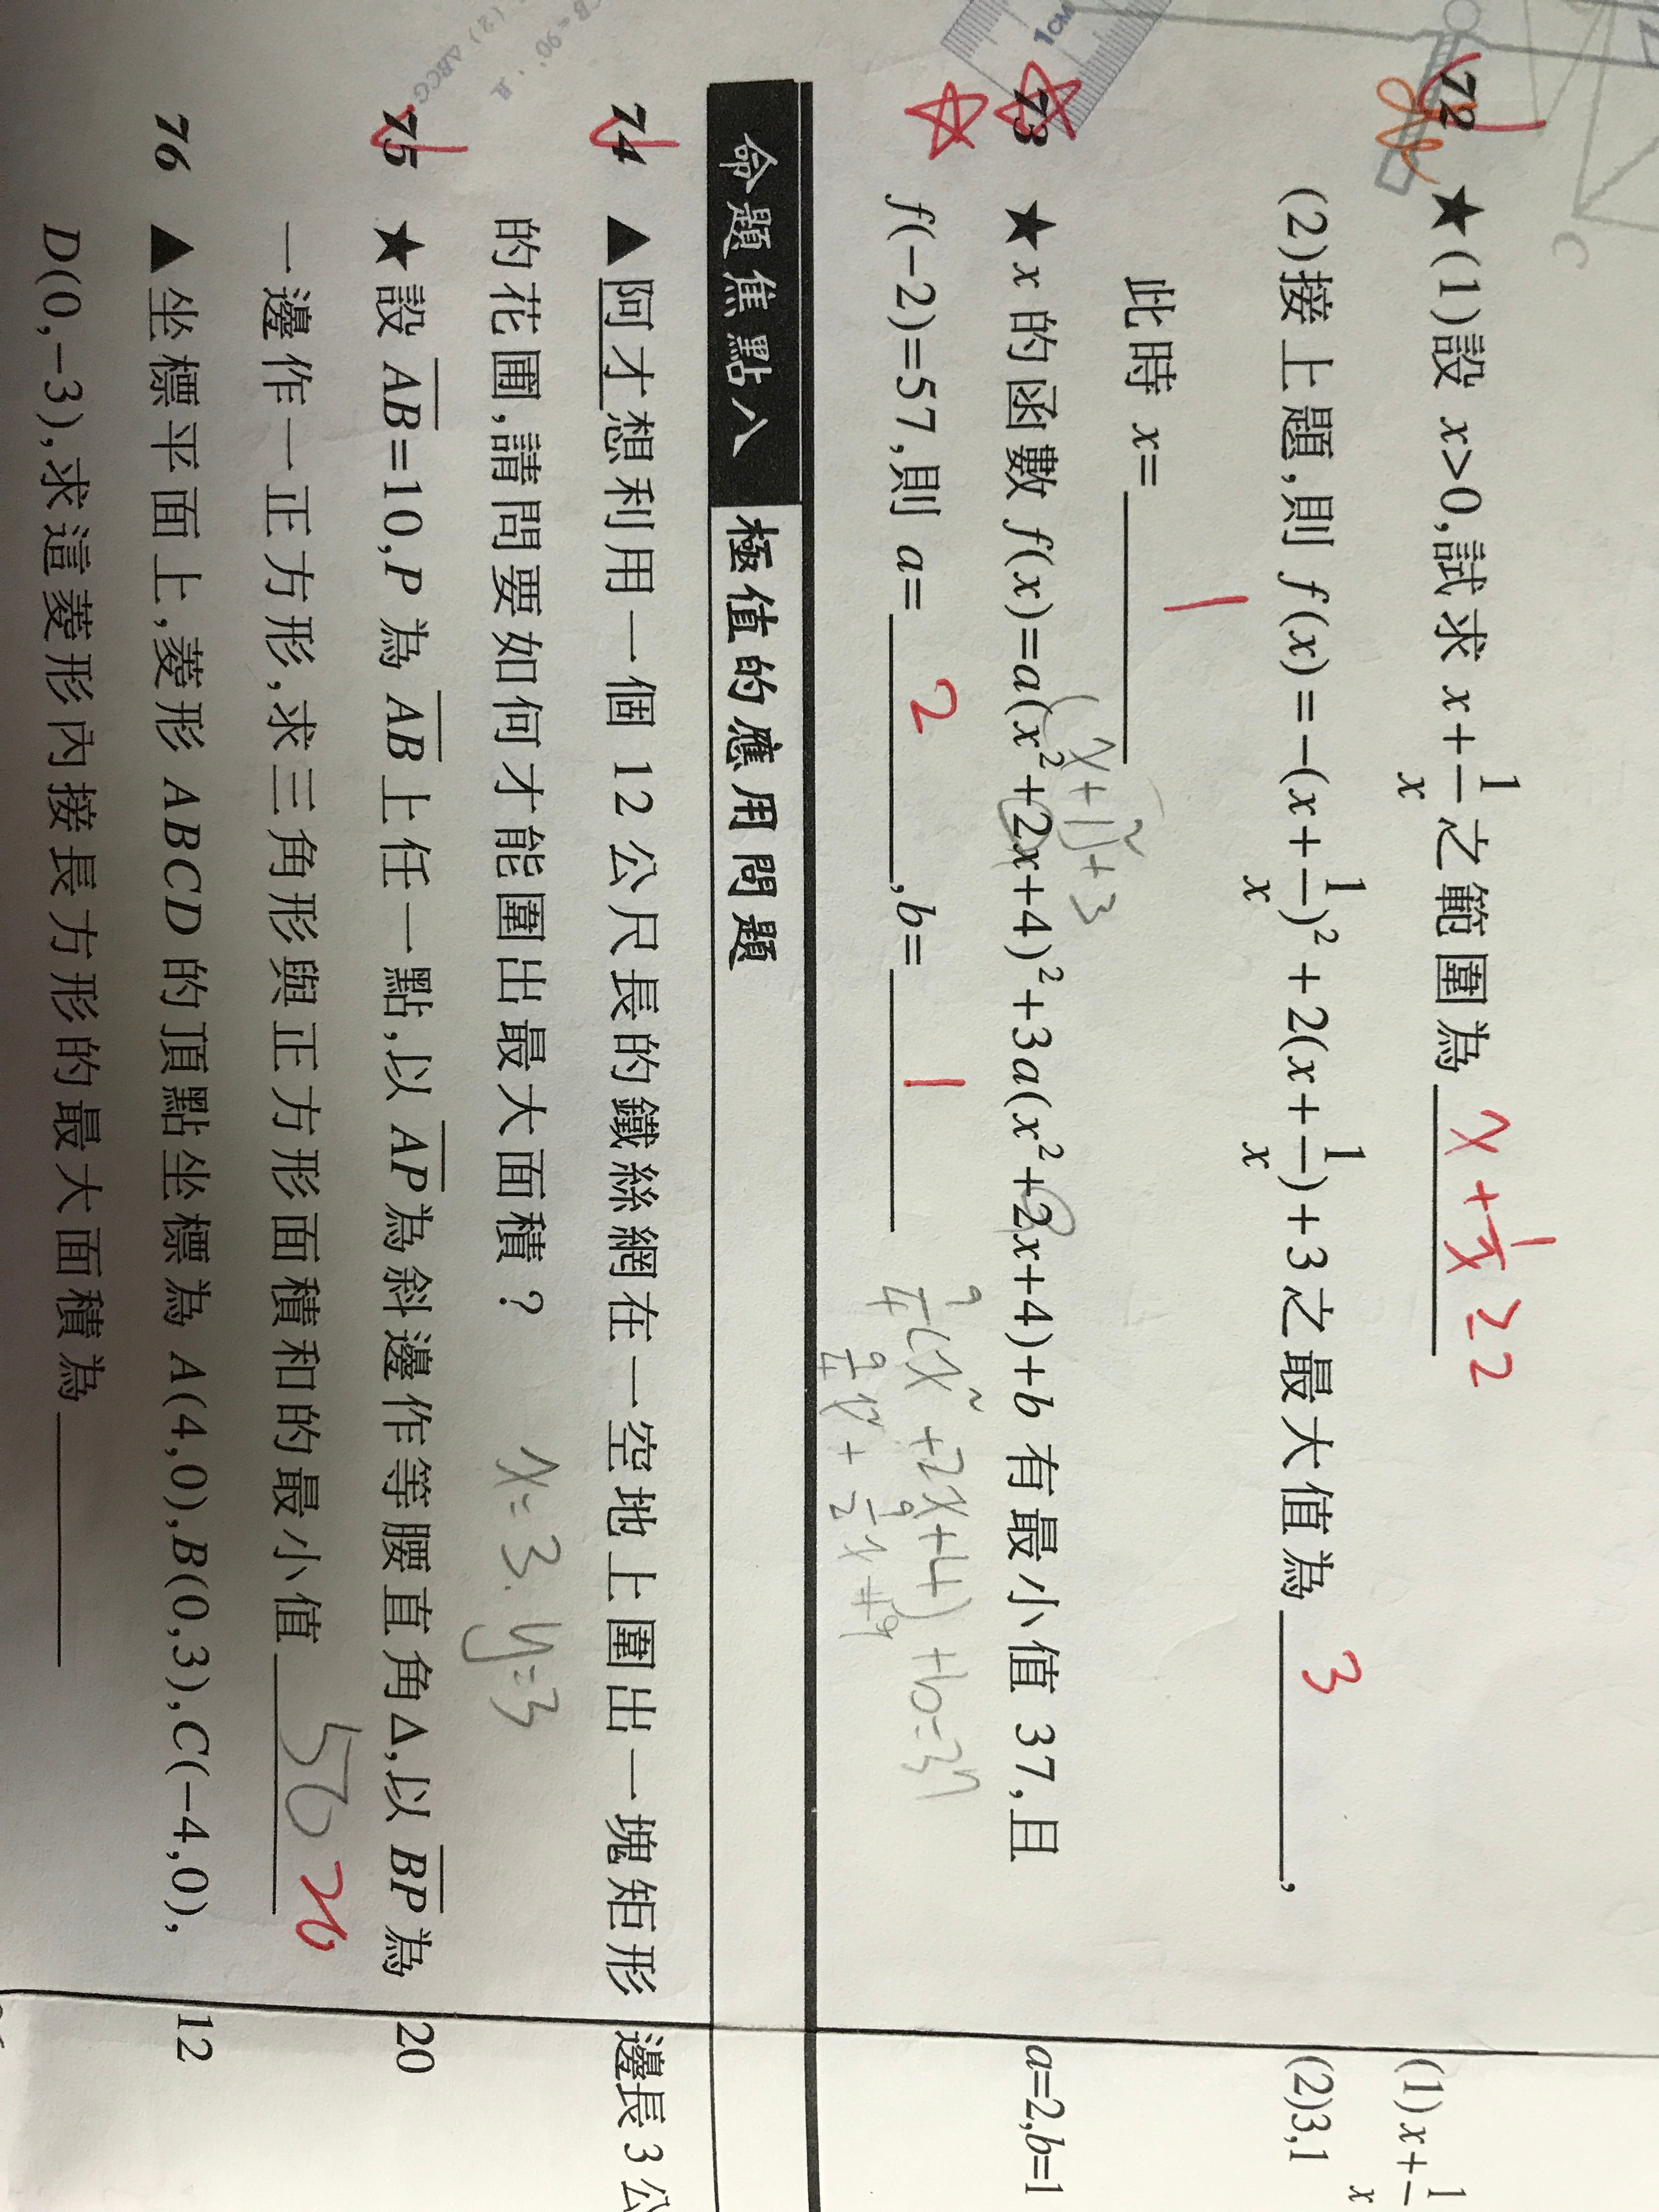 C
1CM
72 ★(1)設 x>0,試求 x+1/x之範圍為 x+1/x≥2
(1)x+1/x
(2)接上題,則 f(x)=-(x+1/x)²+2(x+1/x)+3之最大值為 3 ,
(2)3,1
此時 x= 1
(x+1)²+3
73 ★x 的函數 f(x)=a(x²+2x+4)²+3a(x²+2x+4)+b 有最小值 37,且
a=2,b=1
f(-2)=57,則 a= 2 ,b= 1
命題焦點八 極值的應用問題
74 ▲阿才想利用一個 12 公尺長的鐵絲網在一空地上圍出一塊矩形
邊長 3 公
的花圃,請問要如何才能圍出最大面積? x=3. y=3
75 ★設 AB=10,P 為 AB上任一點,以 AP為斜邊作等腰直角△,以 BP為
20
一邊作一正方形,求三角形與正方形面積和的最小值 50 20
76 ▲坐標平面上,菱形 ABCD 的頂點坐標為 A(4,0),B(0,3),C(-4,0),
12
D(0,-3),求這菱形內接長方形的最大面積為